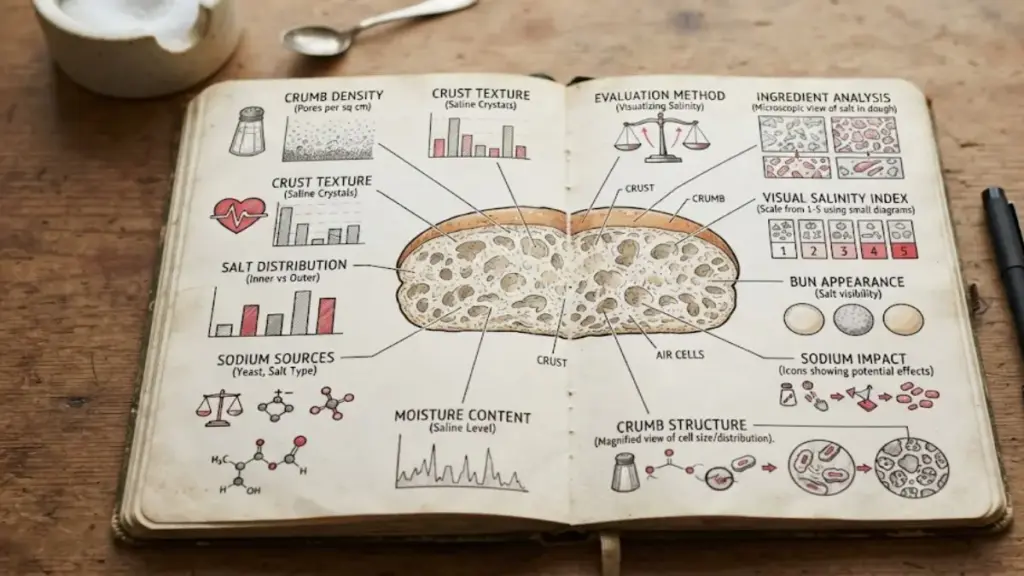 CRUMB DENSITY
(Pores per sq cm)
CRUST TEXTURE
(Saline Crystals)
CRUST TEXTURE
(Saline Crystals)
SALT DISTRIBUTION
(Inner vs Outer)
SODIUM SOURCES
(Yeast, Salt Type)
H₃C
H
H
OH
MOISTURE CONTENT
(Saline Level)
EVALUATION METHOD
(Visualizing Salinity)
CRUST
CRUMB
CRUST
AIR CELLS
INGREDIENT ANALYSIS
(Microscopic view of salt in dough)
VISUAL SALINITY INDEX
(Scale from 1-5 using small diagrams)
1 2 3 4 5
BUN APPEARANCE
(Salt visibility)
SODIUM IMPACT
(Icons showing potential effects)
CRUMB STRUCTURE
(Magnified view of cell size/distribution).